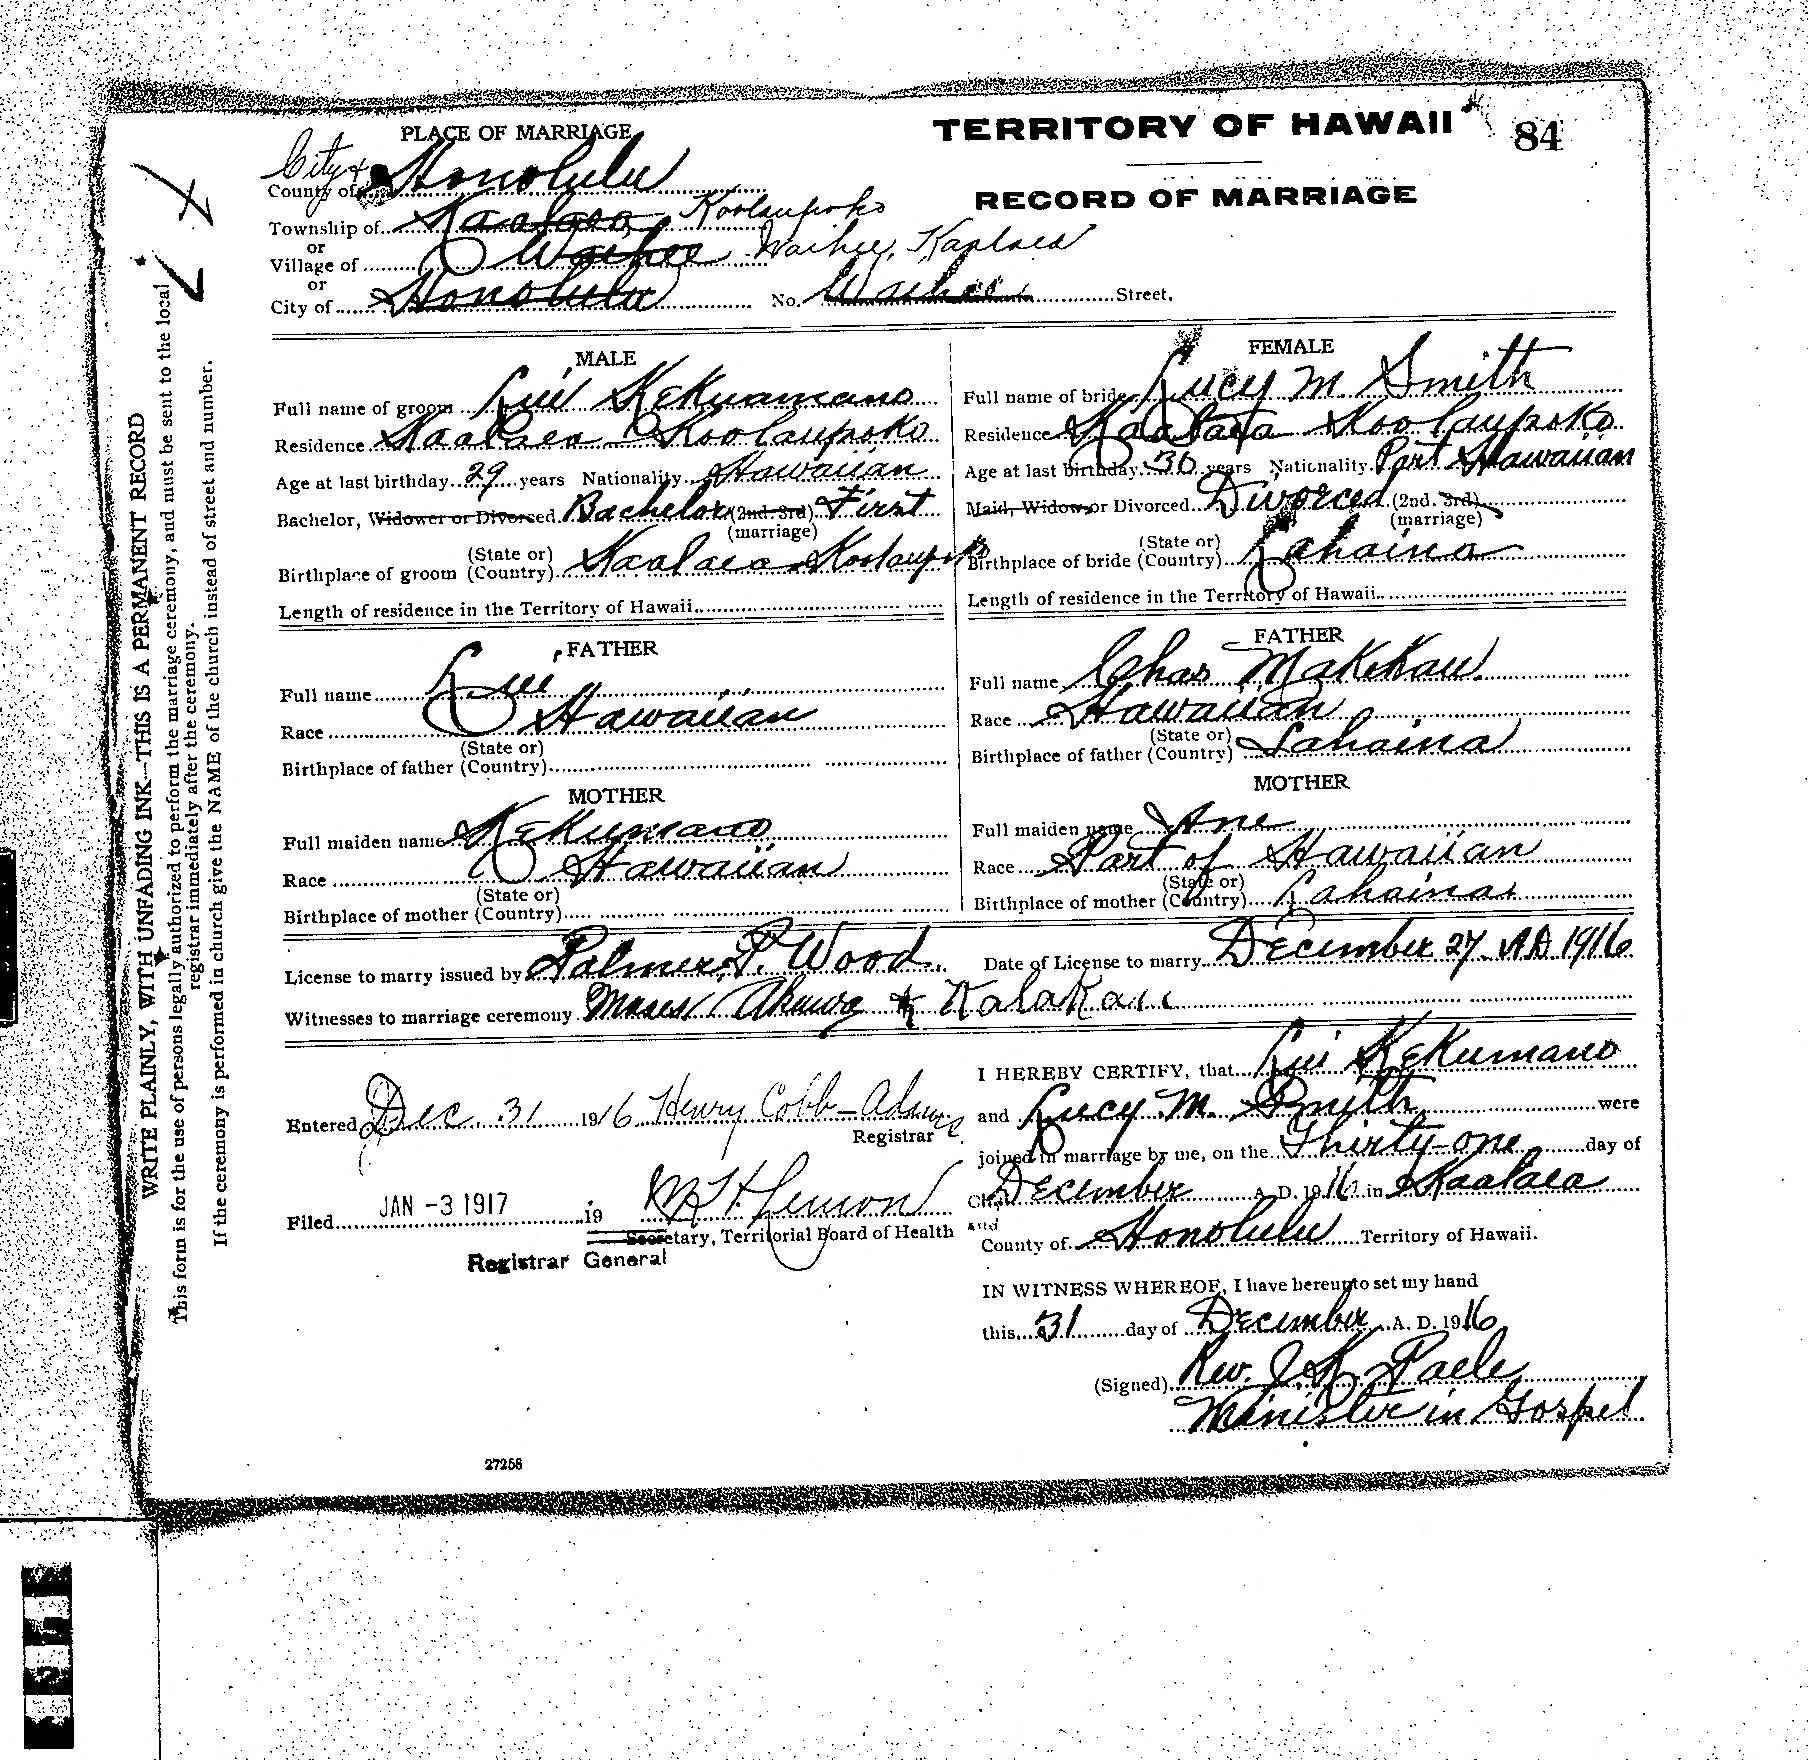 PLACE OF MARRIAGE
TERRITORY OF HAWAII
84
RECORD OF MARRIAGE
City &
County of Honolulu
Township of Kaalaea Koolaupoko
or
Village of Waihee Waihee, Kaalaea
or
City of Honolulu No. Waihee Street.
MALE
Full name of groom Lui Kekuamano
Residence Kaalaea Koolaupoko
Age at last birthday 29 years Nationality Hawaiian
Bachelor, Widower or Divorced Bachelor (2nd. 3rd) First
(marriage)
Birthplace of groom (State or Country) Kaalaea Koolaupoko
Length of residence in the Territory of Hawaii
FATHER
Full name Lui
Race Hawaiian
Birthplace of father (State or Country)
MOTHER
Full maiden name Kekumano
Race Hawaiian
Birthplace of mother (State or Country)
FEMALE
Full name of bride Lucy M. Smith
Residence Kaalaea Koolaupoko
Age at last birthday 36 years Nationality Part Hawaiian
Maid, Widow or Divorced Divorced (2nd. 3rd)
(marriage)
Birthplace of bride (State or Country) Lahaina
Length of residence in the Territory of Hawaii
FATHER
Full name Chas Makekau
Race Hawaiian
Birthplace of father (State or Country) Lahaina
MOTHER
Full maiden name Ane
Race Part of Hawaiian
Birthplace of mother (State or Country) Lahaina
License to marry issued by Palmer P. Wood. Date of License to marry December 27 A.D 1916
Witnesses to marriage ceremony Moses Akuwa & Kalakau
Entered Dec 31 1916 Henry Cobb-Adams
Registrar
Filed JAN -3 1917 19
Secretary, Territorial Board of Health
Registrar General
I HEREBY CERTIFY, that Lui Kekumano
and Lucy M. Smith were
joined in marriage by me, on the Thirty-one day of
December A. D. 1916 in Kaalaea
City and
County of Honolulu Territory of Hawaii.
IN WITNESS WHEREOF, I have hereunto set my hand
this 31 day of December A. D. 1916
(Signed) Rev. J. K. Paele
Minister in Gospel
27258
WRITE PLAINLY, WITH UNFADING INK—THIS IS A PERMANENT RECORD
This form is for the use of persons legally authorized to perform the marriage ceremony, and must be sent to the local
registrar immediately after the ceremony.
If the ceremony is performed in church give the NAME of the church instead of street and number.